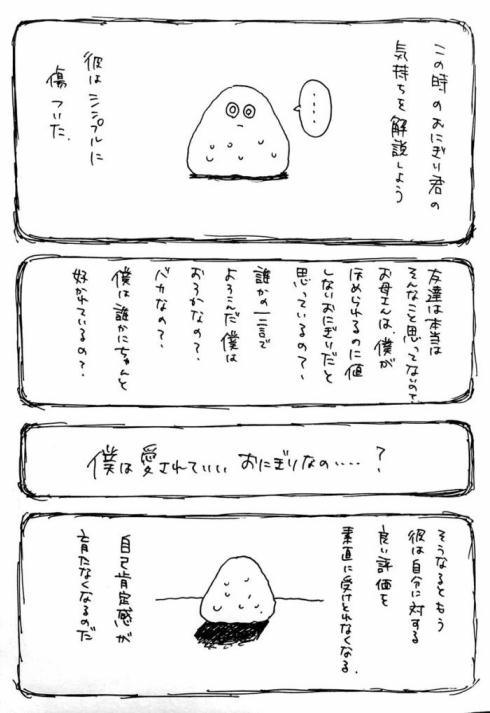 この時のおにぎり君の
気持ちを解説しよう
‥‥
彼はシンプルに
傷ついた.
友達は本当は
そんなこと思ってないので?
お母さんは、僕が
ほめられるのに値
しないおにぎりだと
思っているの?
誰かの一言で
よろこんだ僕は
おろかなの?
バカなの?
僕は誰かにちゃんと
好かれているの?
僕は愛されていい おにぎりなの‥‥?
そうなるともう
彼は自分に対する
良い評価を
素直に受けとれなくなる.
自己肯定感が
育たなくなるのだ